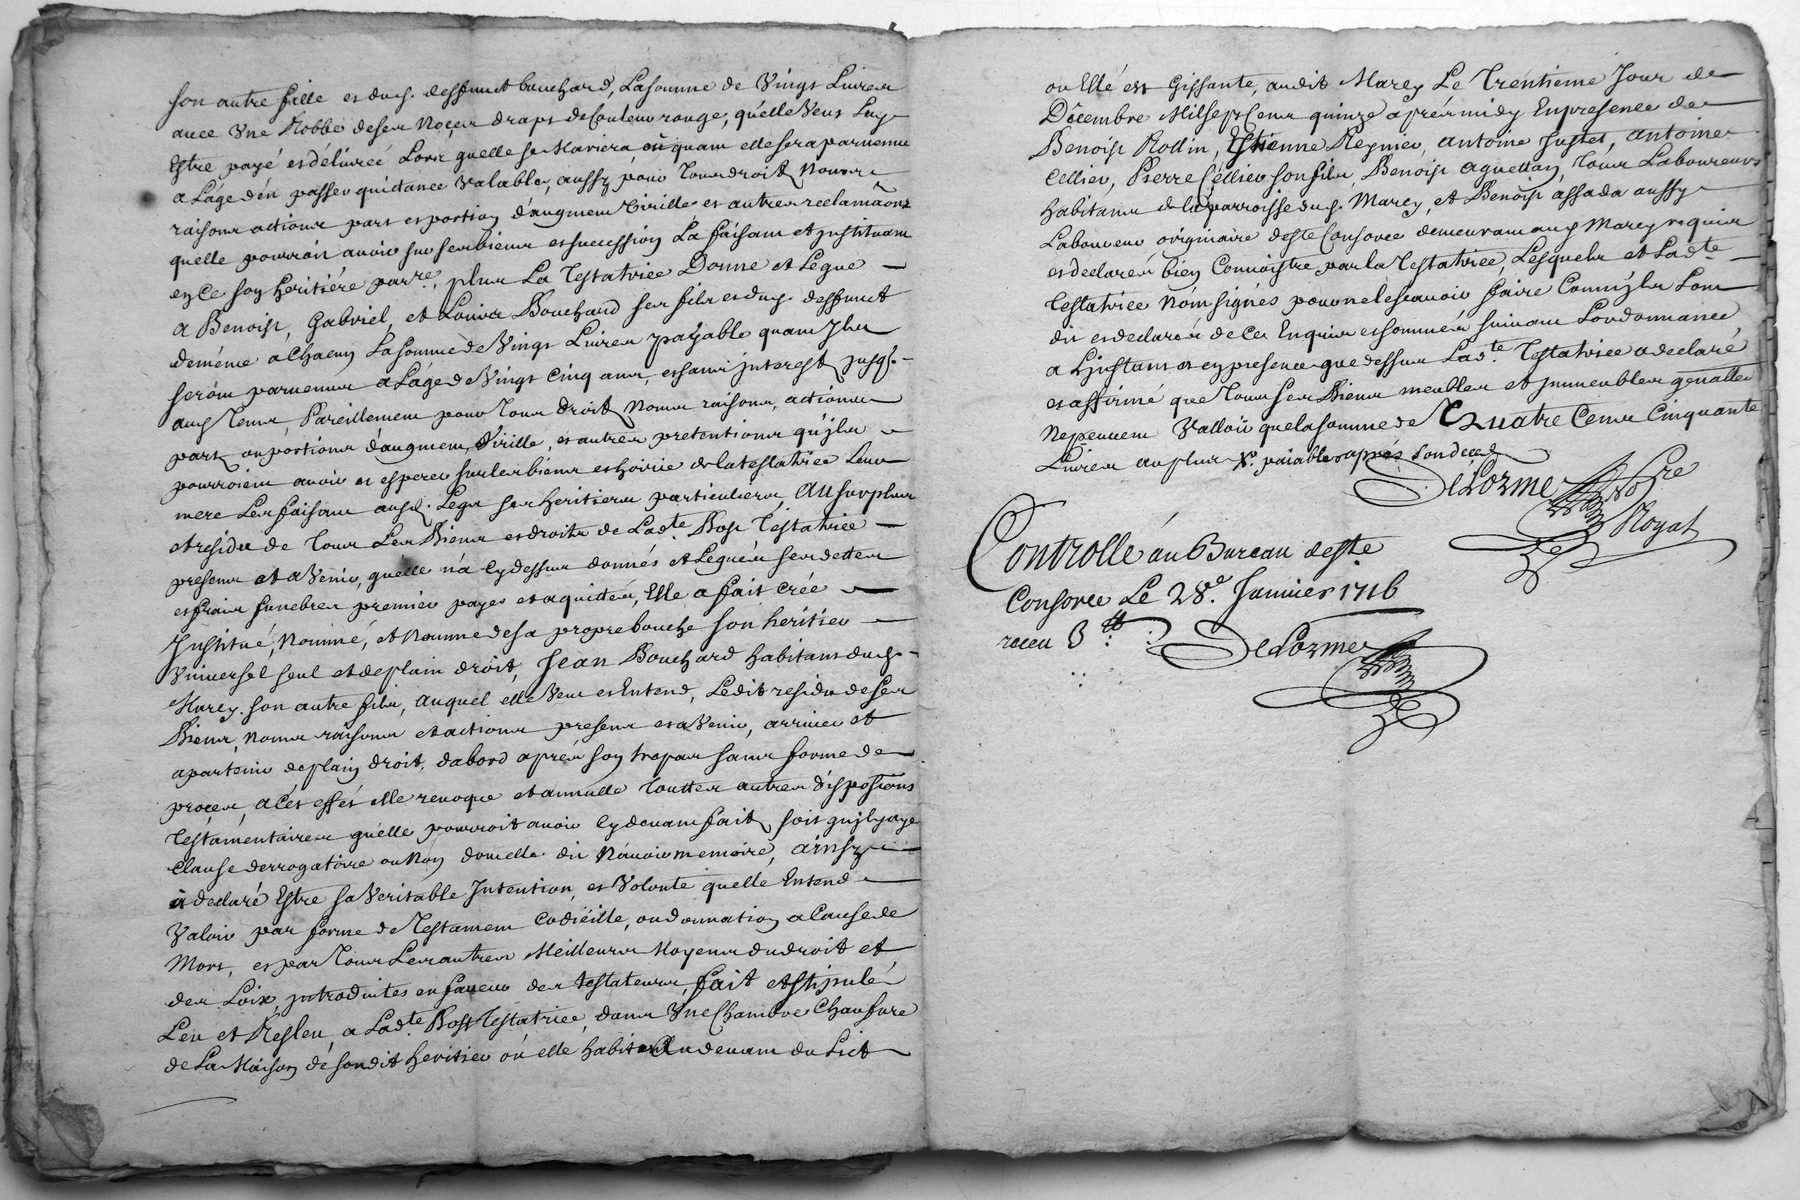 son autre fille et dud. deffunct bouchard, La somme de Vingt Livres
avec Une Robbe de ses Noces draps de Couleur rouge, qu'elle Veut Luy
Estre payé et délivreé Lors quelle se Mariera où quant elle sera parvenue
a L'âge d'en passer quictance Valable, aussy pour Tous droit Noms
raisons actions part et portion d'augment Virille et autres reclamãons
quelle pourroit avoir sur ses biens et succession La faisant et jnstituant
en Ce son heritiére par.re, plus La Testatrice Donne et Légue
a Benoist, Gabriel, et Louis Bouchard ses fils et dud. deffunct
de méme a Chacun La somme de Vingt Livres payable quant jls
seront parvenus a L'âge de Vingt Cinq ans, et sans jnterest jusq.
aud Tems, Pareillement pour Tous droit Noms raisons, actions
part ou portions d'augment, Virille, et autres pretentions qu'jls
pourroient avoir et esperer sur les biens et hoirie de la testatrice Leur
mere Les faisant aud. Legs ses heritiers particuliers, Au surplus
et residu de Tous Les Biens et droits de Lad.te Bost Testatrice
presens et a Venir, quelle n'a Cy dessus donnés et Legués ses dettes
et frais funebres premier payes et aquités, Elle a fait Crée
Jnstitué, Nommé, et Nomme de sa propre bouche son héritier
Vniversel seul et de plain droit, Jean Bouchard habitant dud.
Marcy son autre fils, auquel elle Veut et Entend, Ledit residu de Ses
Biens, Noms raisons et actions presens et a Venir, arriver et
apartenir de plain droit, d'abord aprés son trepas sans forme de
proces, a Cét effét elle revoque et annulle Touttes autres dispositions
Testamentaires qu'elle pourroit avoir Cy devant fait, soit qu'jl y aye
Clause derrogatoire ou Non dont elle dit N'avoir memoire, ainsy
à declaré Estre sa Veritable Jntention et Volonté quelle Entend
Valoir par forme de Testament Codicille, ou donnation a Cause de
Mort, et par Tous Les autres Meilleurs Moyens du droit et
des Loix jntroduites en faveur des testateurs, fait et stipulé
Leu et Resleu, a Lad.te Bost Testatrice, dans Une Chambre Chaufure
de La Maison de sondit heritier où elle habite au devant du Lict
ou Elle est Gissante, audit Marcy Le Trentieme Jour de
Décembre Mil sept Cens quinze aprés midy En presence de
Benoist Rollin, Estienne Reynier, antoine Justet, antoine
Cellier, Pierre Cellier son fils, Benoist aguettan, Tous Laboureurs
habitans de la parroisse dud. Marcy, et Benoist assada aussy
Laboureur originaire deste Consorce demeurant aud Marcy requis
et declarés bien Connoistre par la Testatrice, Lesquels et Lad.te
Testatrice N'ont signés pour ne le scavoir faire Comm'jls L'ont
dit et declarés de Ce Enquis et sommés suivant L'ordonnance,
a L'jnstant et en presence que dessus Lad.te Testatrice a declaré
et affirmé que Tous ses Biens meubles et jmmeubles
Ne peuvent Valloir que la somme de Quatre Cens Cinquante
Livres au plus payables aprés son deced
DeLorme No.re
Royal
Controllé au Bureau deste
Consorce Le 28.e Janvier 1716
receu 3 tt
DeLorme